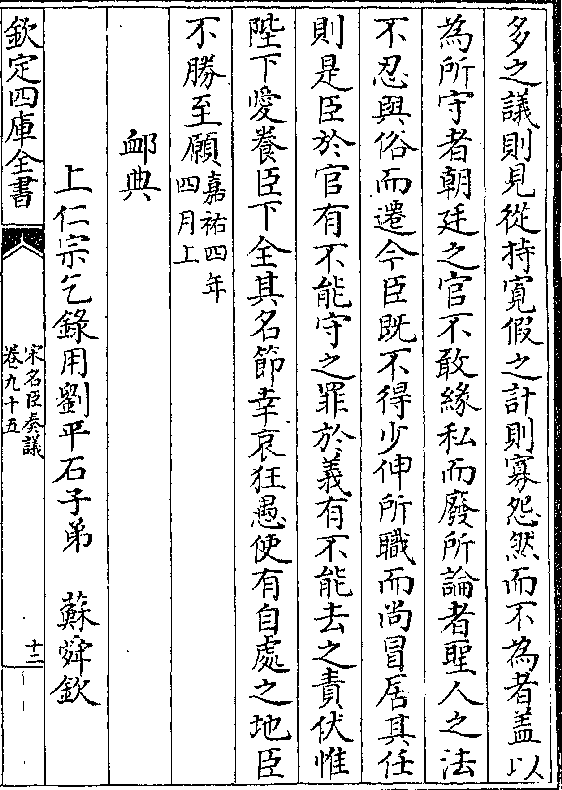 多之議則見從持寬假之計則寡怨然而不為者盖以
為所守者朝廷之官不敢緣私而廢所論者聖人之法
不忍與俗而遷今臣既不得少伸所職而尚冒居其任
則是臣於官有不能守之罪於義有不能去之責伏惟
陛下愛養臣下全其名節幸哀狂愚使有自處之地臣
不勝至願嘉祐四年
四月上
䘏典
上仁宗乞錄用劉平石子弟　蘇舜欽
欽定四庫全書
宋名臣奏議
卷九十五
十二